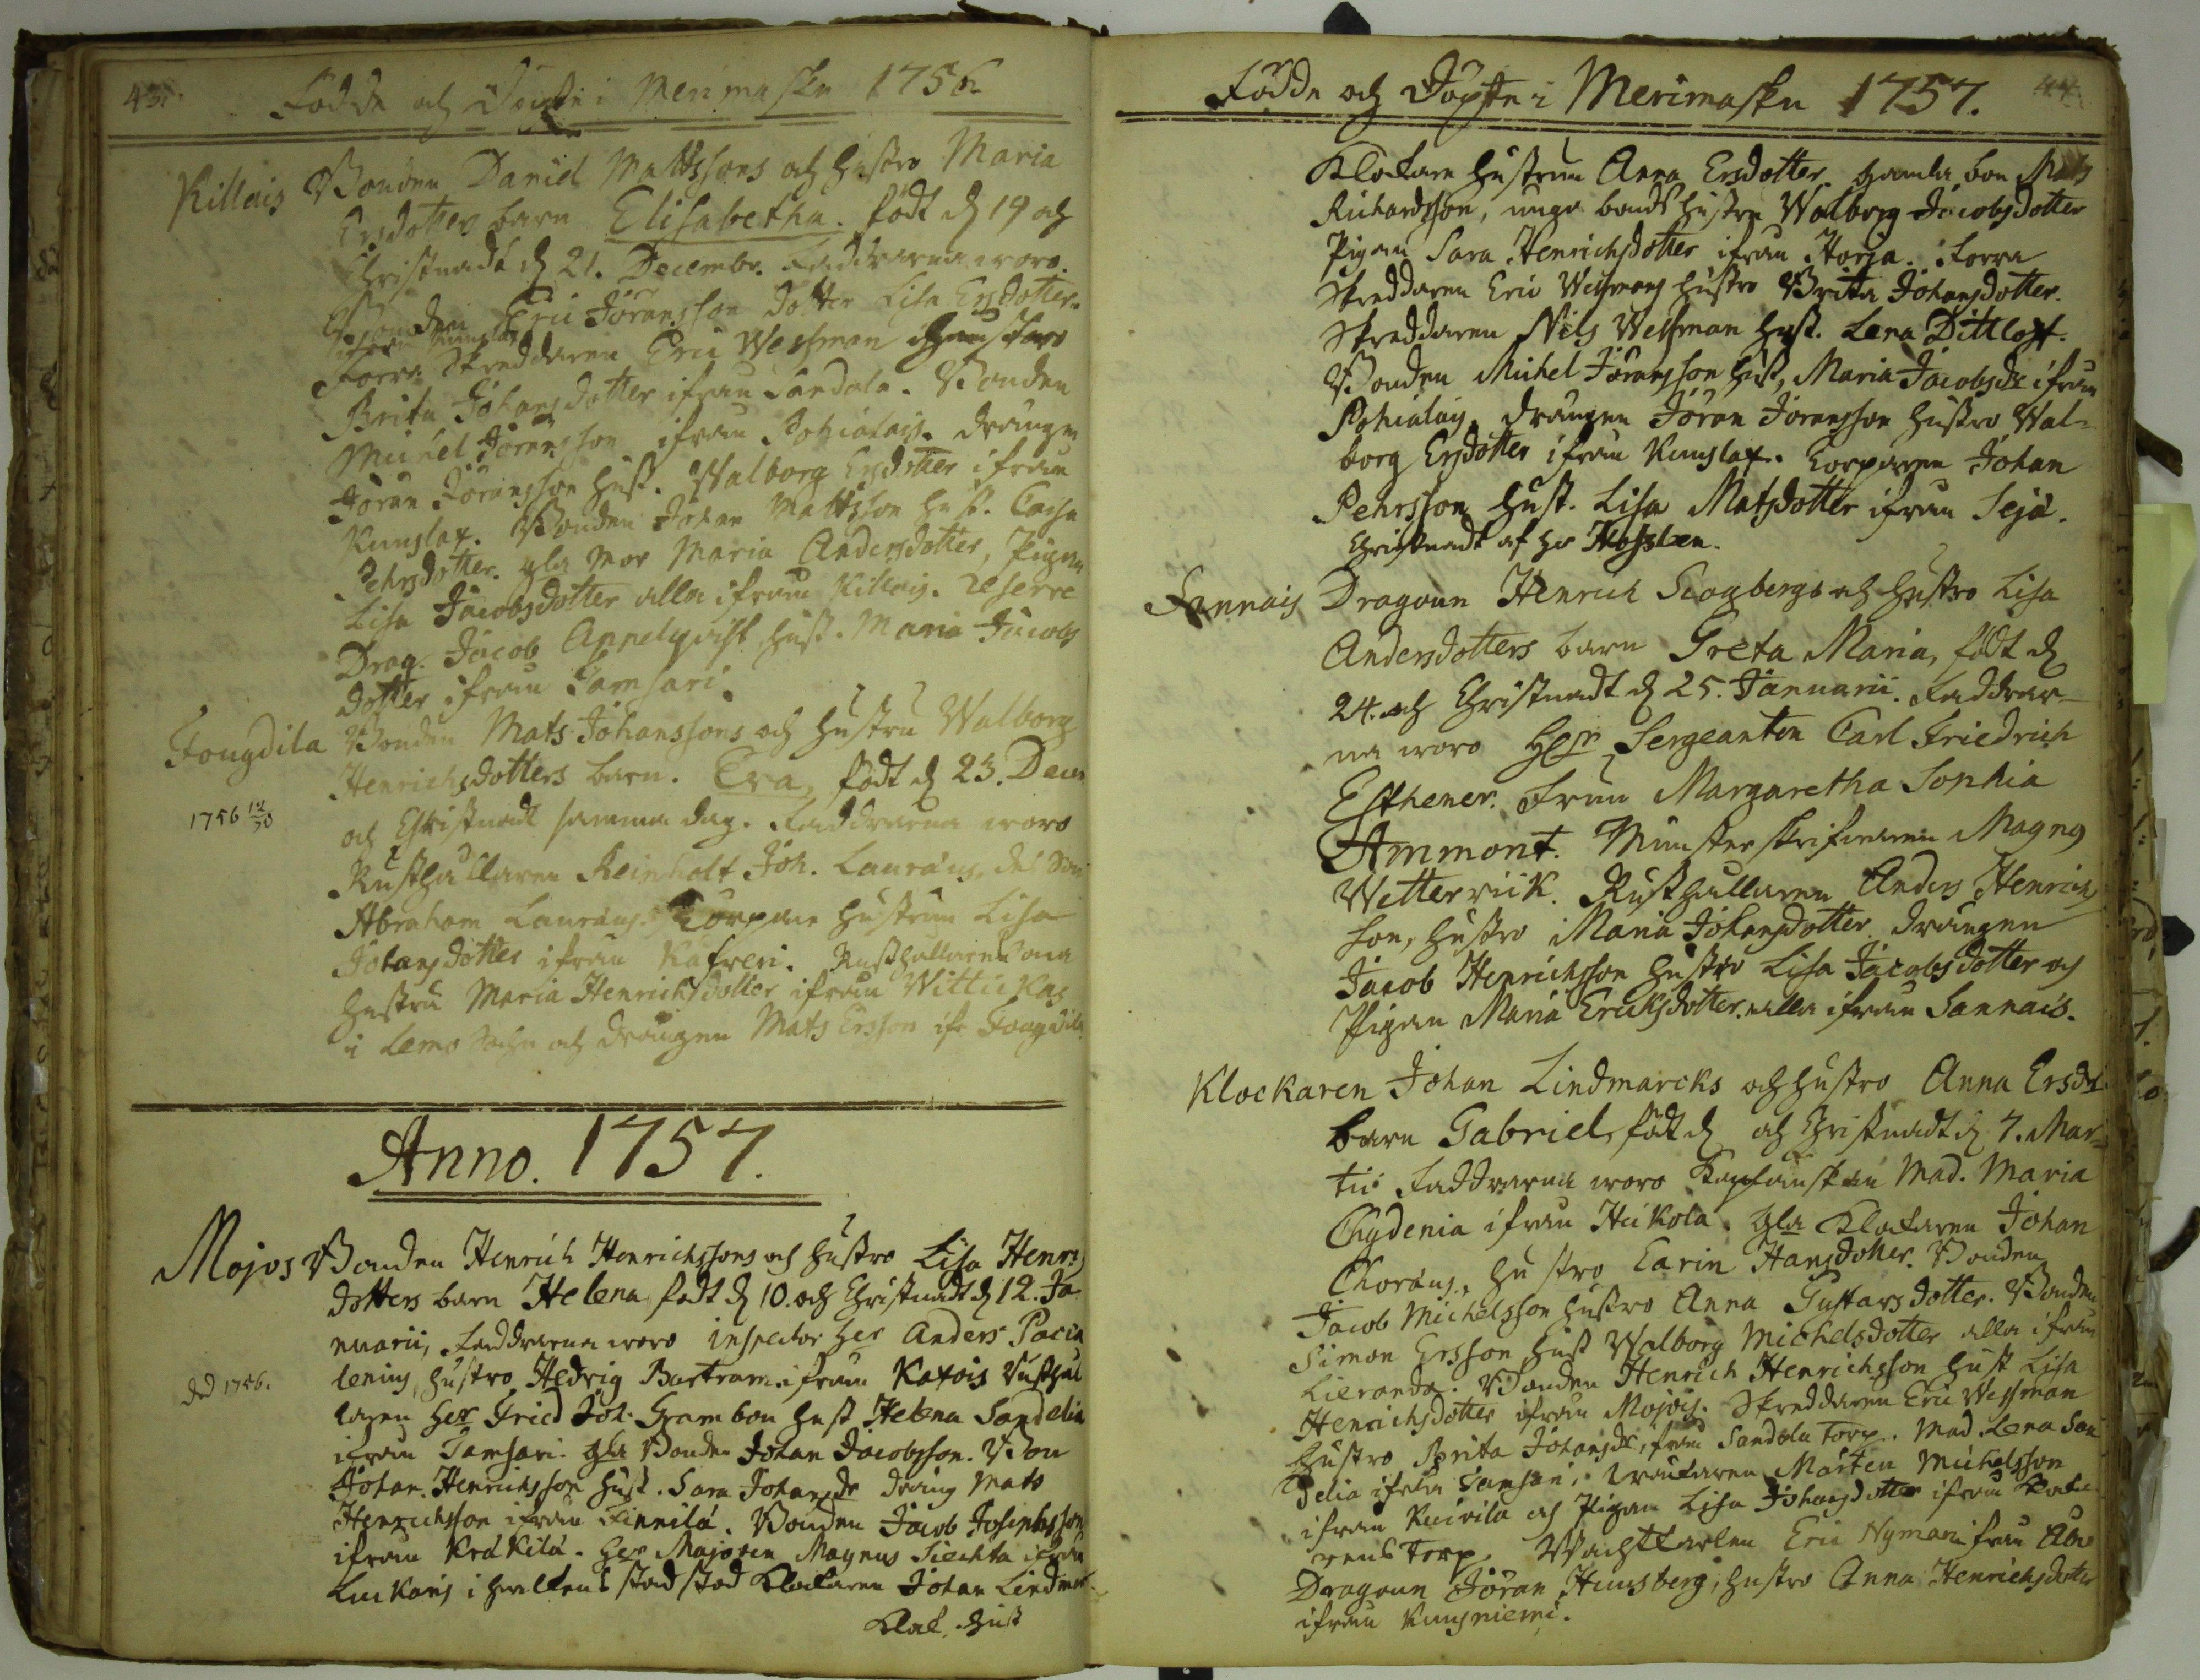 43.
Födde och Döpte i Merimasku 1756.
Killais Bonden Daniel Mattssons och hustro Maria
Ersdotters barn Elisabetha. födt d 19 och
Christnadt d 21. Decembr. Faddrarna woro.
Bonden Eric Jöransson dotter Lisa Ersdotter.
ifrån Kunslax
Torp. Skreddaren Eric Wessman hustro
Brita Johansdotter ifrån Sandala. Bonden
Michel Jöransson ifrån Pohialais. drängen
Jöran Jöransson hust. Walborg Ersdotter ifrån
Kunslax. Bonden Johan Mattsson hust. Caisa
Pehrsdotter. gla mor Maria Andersdotter, Pigan
Lisa Jacobsdotter alla ifrån Killais. Reserve
Drag. Jacob Appelqvist hust. Maria Jacobs
dotter ifrån Tamsari.
Fougdila Bonden Mats Johanssons och hustru Walborg
Henrichsdotters barn. Eva, födt d 23. Decem
1756 12/30
och Christnadt samma dag. Faddrarna woro
Rusthållaren Reinholt Joh. Lauræus, des Son
Abraham Lauræus. Torpare hustrun Lisa
Johansdotter ifrån Kafreri. Rusthållarens
hustru Maria Henrichsdotter ifrån Wittickas
i Lemo Sochn och drängen Mats Ersson ifr Fougdila
Anno. 1757.
Mojos Bonden Henrich Henrichssons och hustro Lisa Henri
dotters barn Helena födt d 10. och Christnadt d 12. Ja
nuarii, Faddrarna woro inspector Her Anders Pacia
lenius, hustro Hedvig Bartram ifrån Katois Rusthål
ded 1756.
laren Her Fried Joh. Gram hust Helena Sandelia
ifrån Tamsari. gla Bonden Johan Jacobsson. Bon
Johan Henrichsson hust. Sara Johansdr dräng Mats
Henrichsson ifrån Finnilä. Bonden Jacob Josephsson
ifrån Kräkilä. Her Majoren Magnus Tiechta ifrån
Luckars i hwilkens stad stod Klockaren Johan Lindmar
Klock. hust
44.
Födde och Döpte i Merimasku 1757.
Klockare hustrun Anna Ersdotter. gamla bon Mats
Richardsson, unga bonds hustru Walborg Jacobsdotter
Pigan Sara Henrichsdotter ifrån Horja. Torp
Skreddaren Eric Wessmans hustro Brita Johansdotter.
Skreddaren Nils Wessman hust. Lena Dittloff.
Bonden Michel Jöransson hust, Maria Jacobsdr ifrån
Pohialais, drängen Jöran Jöransson hustro Wal-
borg Ersdotter ifrån Kunslax. Torparen Johan
Pehrsson hust. Lisa Matsdotter ifrån Sejä.
Christnadt af hr Hosslen.
Sannais Dragoun Henrich Skogbergs och hustro Lisa
Andersdotters barn Greta Maria, födt d
24. och Christnadt d 25. Januarii. Faddrar-
na woro Herr Sergeanten Carl Friedrich
Esthener. Frun Margaretha Sophia
Ammont. Munsterskrifwaren Magnus
Wetterviik. Rusthållaren Anders Henrichs
son, hustro Maria Johansdotter drängen
Jacob Henrichsson hustro Lisa Jacobsdotter och
Pigan Maria Eriksdotter. alla ifrån Sannais.
Klockaren Johan Lindmarcks och hustro Anna Ersdr
barn Gabriel, födt d och Christnadt d 7. Mar-
tii Faddrarna woro Kaplanskan Mad. Maria
Chydenia ifrån Heikola. gla Klockaren Johan
Choræus, hustro Carin Hansdotter. Bonden
Jacob Michelsson hustro Anna Gustavsdotter. Bonden
Simon Ersson hust Walborg Michelsdotter alla ifrån
Lieranda. Bonden Henrich Henrichsson hust Lisa
Henrichsdotter ifrån Mojois. Skreddaren Eric Wessman
hustro Brita Johansdr, från Sandala torp. Mad. Lena San
delia ifrån Tamsari, Mårten Michelsson
ifrån Ruivila och Pigan Lisa Johansdotter ifrån
rens torp. Wachtkarlen Eric Nyman ifrån Åbo
Dragoun Jöran Hunsberg, hustro Anna Henrichsdotter
ifrån Kungniemi.